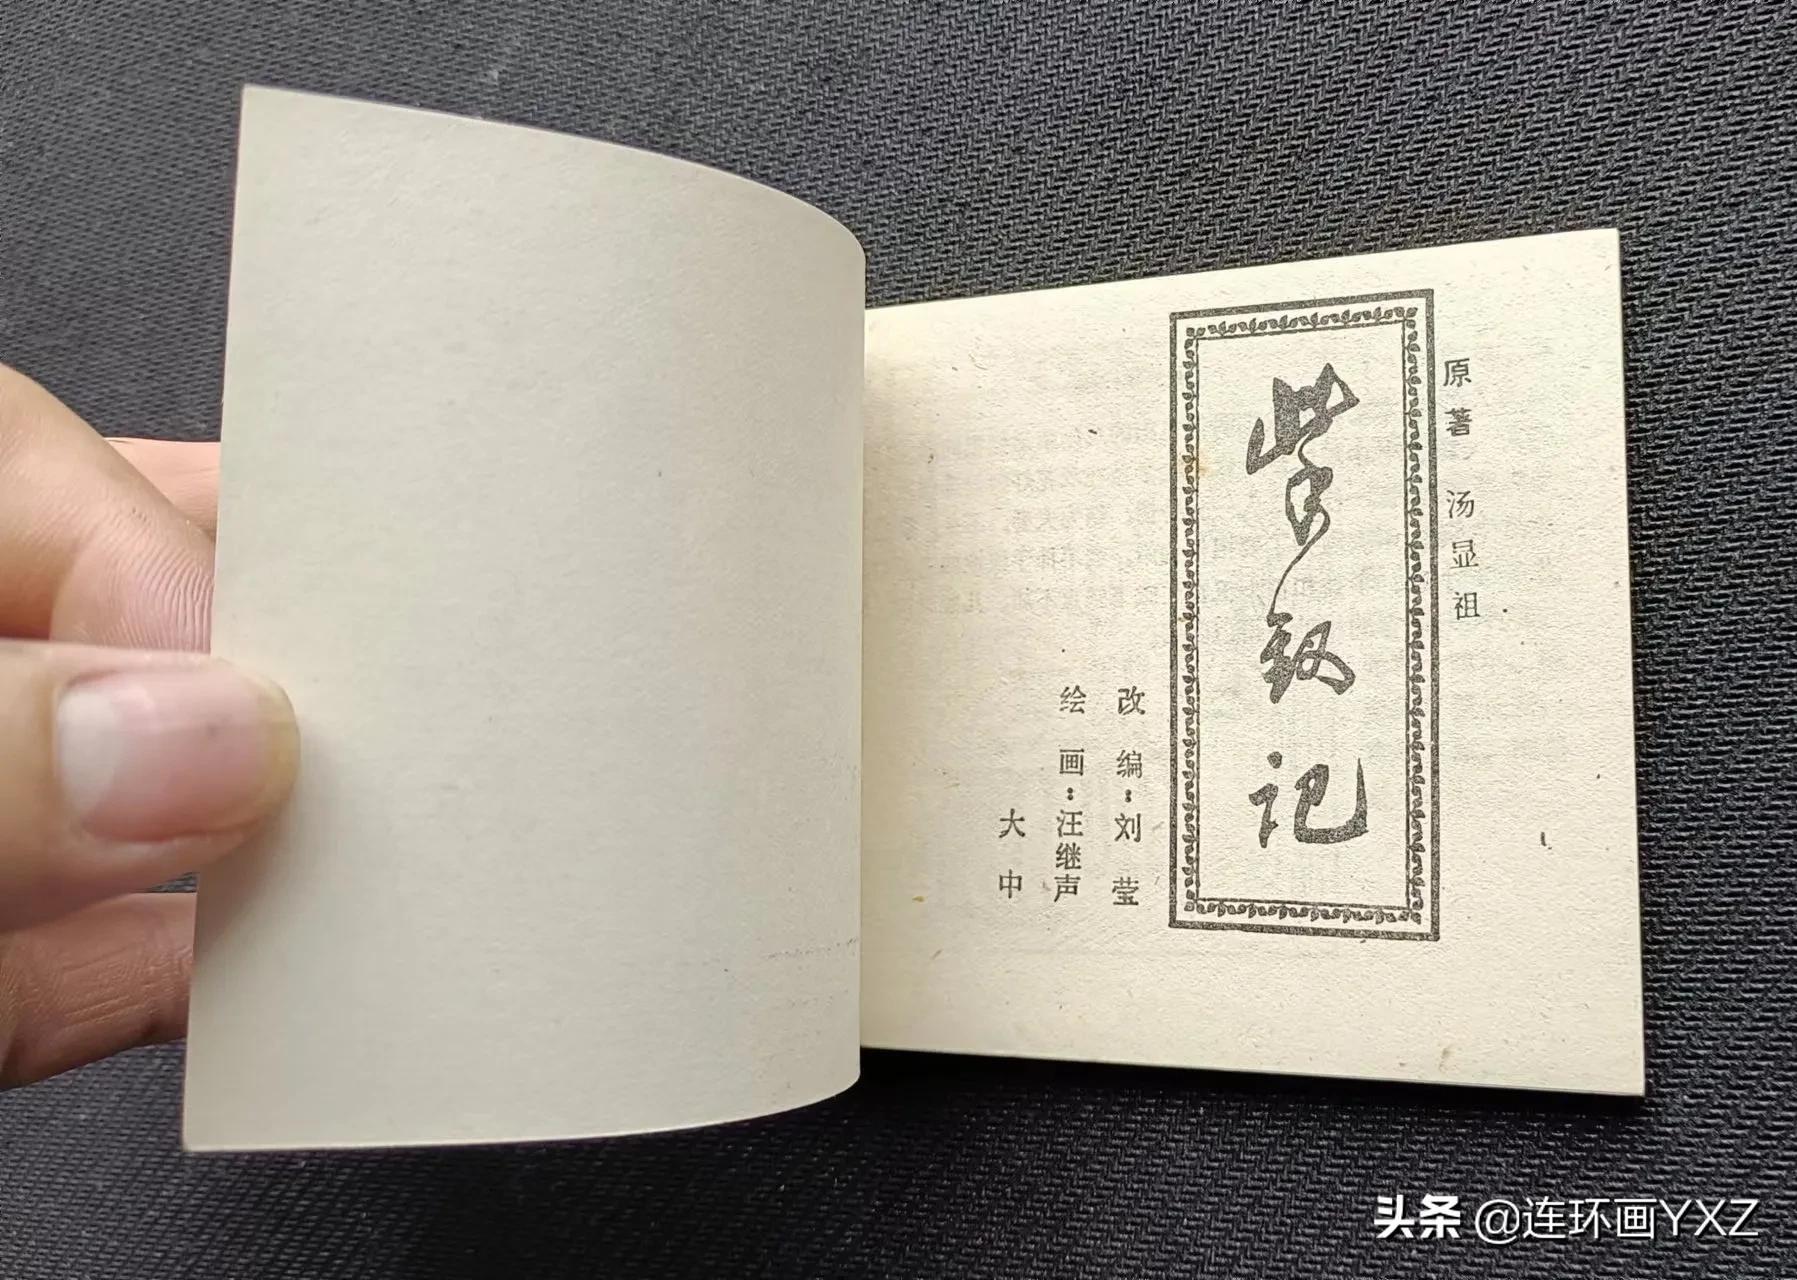 原著 汤显祖
紫钗记
改编：刘莹
绘画：汪继声
大中
头条 @连环画YXZ